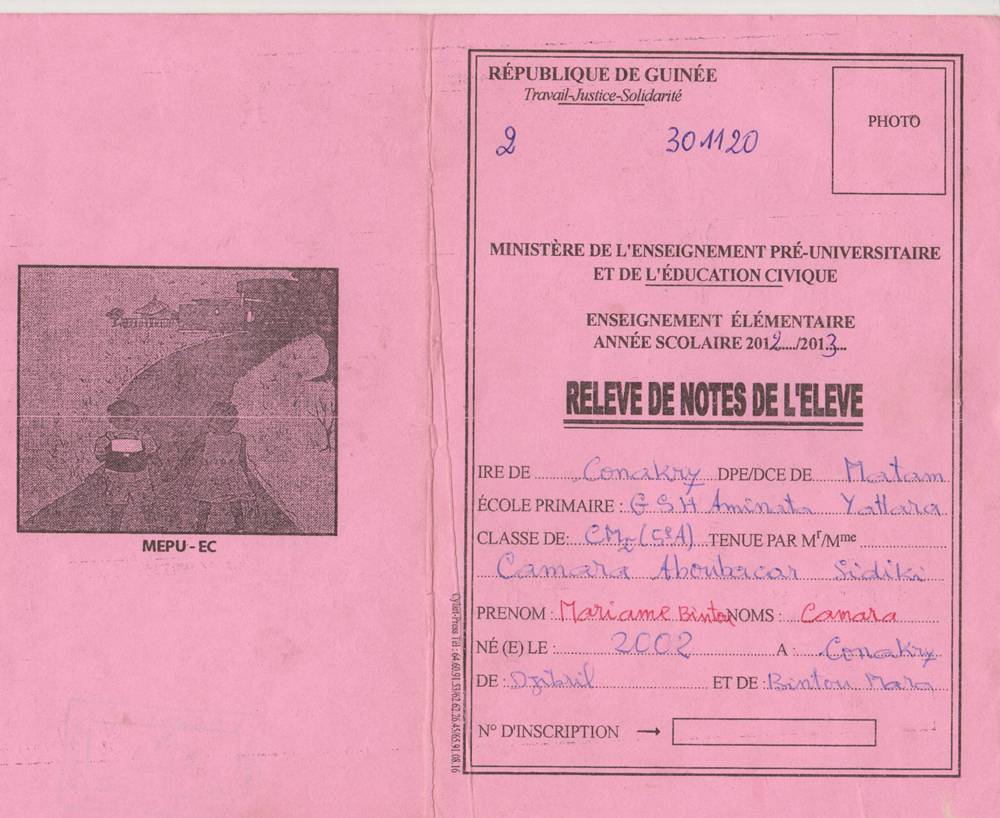 MEPU - EC
RÉPUBLIQUE DE GUINÉE
Travail-Justice-Solidarité
PHOTO
2 301120
MINISTÈRE DE L'ENSEIGNEMENT PRÉ-UNIVERSITAIRE
ET DE L'ÉDUCATION CIVIQUE
ENSEIGNEMENT ÉLÉMENTAIRE
ANNÉE SCOLAIRE 2012..../2013....
RELEVE DE NOTES DE L'ELEVE
IRE DE Conakry DPE/DCE DE Matam
ÉCOLE PRIMAIRE : G S H Aminata Yattara
CLASSE DE: CM1 (5èA) TENUE PAR Mr/Mme
Camara Aboubacar Sidiki
PRENOM : Mariame Bintou NOMS : Camara
NÉ (E) LE : 2002 A : Conakry
DE : Djibril ET DE : Bintou Mara
N° D'INSCRIPTION →